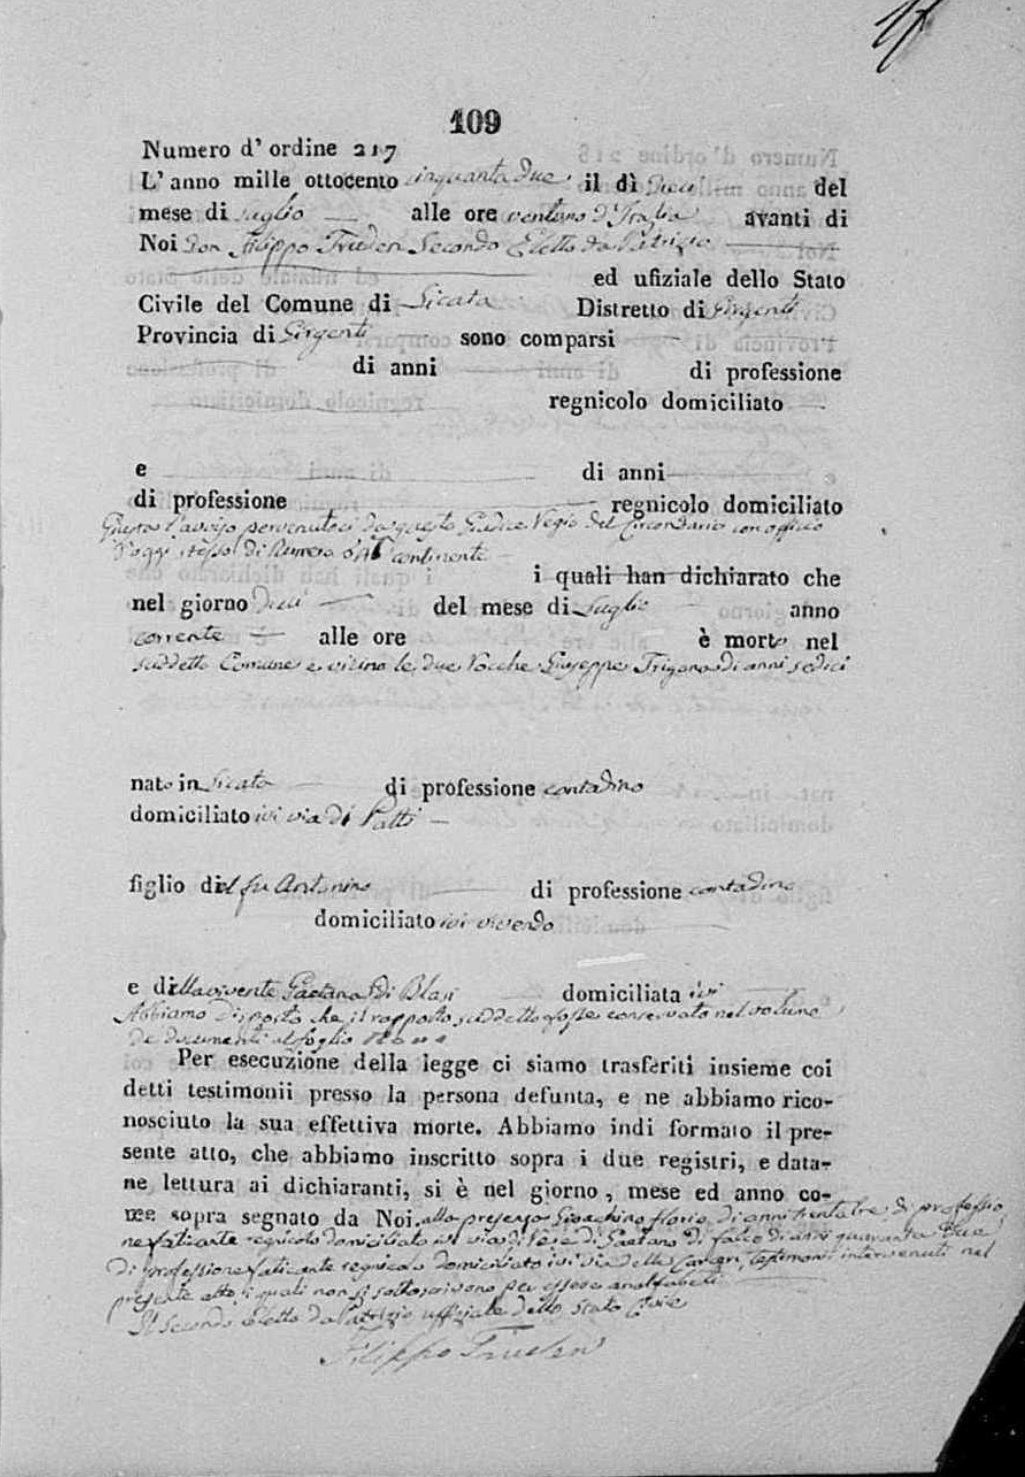 109
Numero d' ordine 217
L' anno mille ottocento cinquanta due il dì Dieci del
mese di Luglio alle ore ventuno d'Italia avanti di
Noi Don Filippo Secondo Eletto da Patrizio
ed ufiziale dello Stato
Civile del Comune di Licata Distretto di Girgenti
Provincia di Girgenti sono comparsi
di anni di professione
regnicolo domiciliato
e di anni
di professione regnicolo domiciliato
Giusta l'avviso pervenutoci da questo Giudice Regio del Circondario con officio
d'oggi stesso di Numero continente
i quali han dichiarato che
nel giorno Dieci del mese di Luglio anno
corrente alle ore è morto nel
suddetto Comune e vicino le due Rocche Giuseppe Trigona di anni sedici
nato in Licata di professione contadino
domiciliato ivi via di Patti
figlio del fu Antonino di professione contadino
domiciliato ivi vivendo
e della vivente Gaetana Di Blasi domiciliata ivi
Abbiamo disposto che il rapporto suddetto fosse conservato nel volume
de documenti al foglio
Per esecuzione della legge ci siamo trasferiti insieme coi
detti testimonii presso la persona defunta, e ne abbiamo rico-
nosciuto la sua effettiva morte. Abbiamo indi formato il pre-
sente atto, che abbiamo inscritto sopra i due registri, e data-
ne lettura ai dichiaranti, si è nel giorno, mese ed anno co-
me sopra segnato da Noi. alla presenza Gioachino Florio di anni trentatre di professio
ne faticante regnicolo domiciliato ivi via di Gaetano di Falco di anni quaranta due
di professione faticante regnicolo domiciliato ivi via delle Carceri, testimoni intervenuti nel
presente atto, i quali non si sottoscrivono per essere analfabeti
Il Secondo Eletto da Patrizio uffiziale dello Stato Civile
Filippo